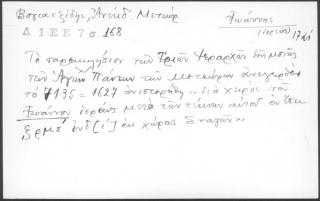 Βογιατζίδης, Ἀνέκδ. Μετεώρ Ἰωάννης
Δ Ι Ε Ε 7 σ. 168 ἱερεύς 17 αἰ
Τὸ παρεκκλήσιον τῶν Τριῶν Ἱεραρχῶν τῆς μονῆς
τῶν Ἁγίων Πάντων τῶν Μετεώρων ἀνεγερθὲν
τὸ 7135 = 1627 ἀνιστορήθη «διὰ χειρὸς τοῦ
Ἰωάννου ἱερέως μετὰ τῶν τέκνων αὐτοῦ ἐν ἔτει
ζρλε ἰνδ[ι] ἐκ χώρας Σταγῶν»